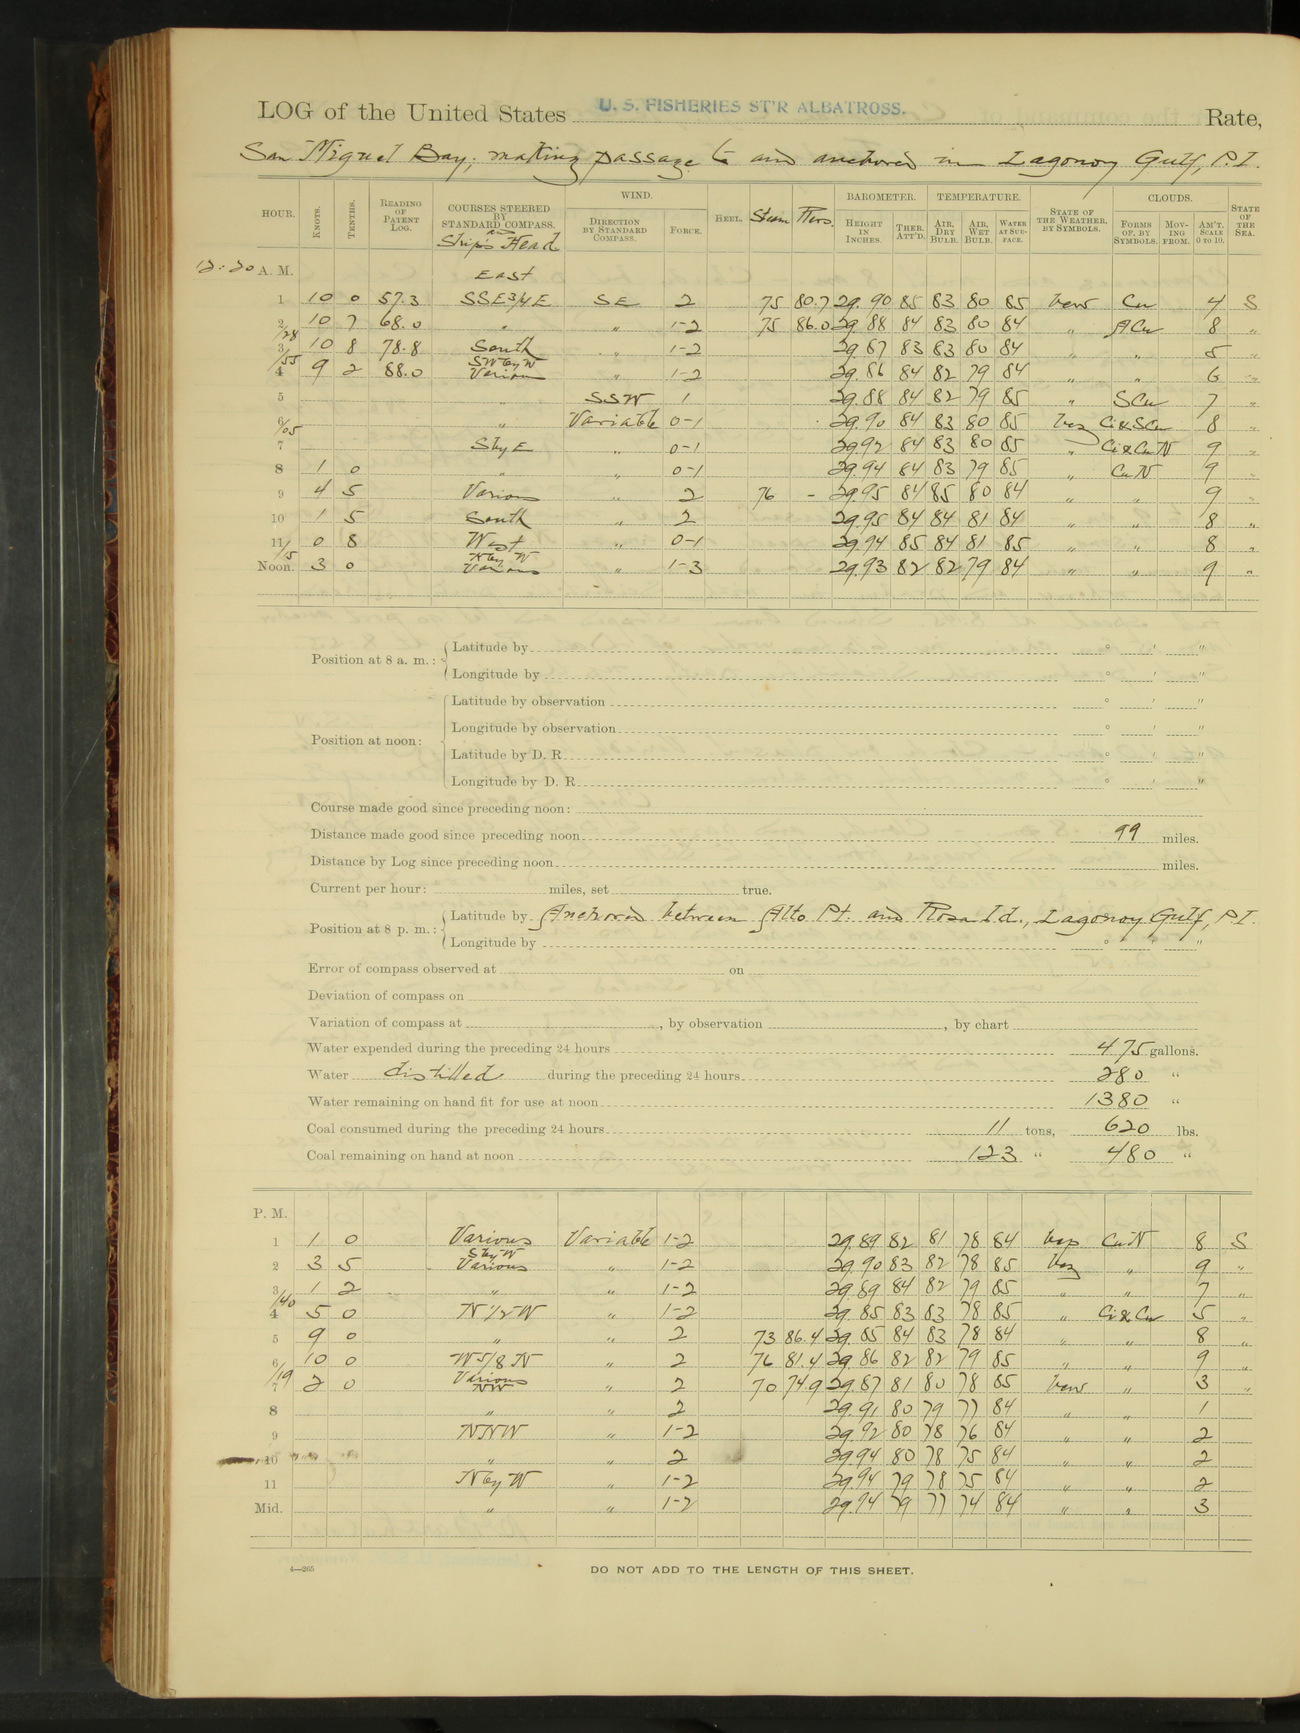 LOG of the United States U. S. FISHERIES ST'R ALBATROSS. Rate,
San Miguel Bay, making passage to and anchored in Lagonoy Gulf, P.I.
HOUR. KNOTS. TENTHS. READING OF PATENT LOG. COURSES STEERED BY STANDARD COMPASS. and Ship's Head WIND. DIRECTION BY STANDARD COMPASS. FORCE. HEEL. Steam Revs. BAROMETER. HEIGHT IN INCHES. THER. ATT'D. TEMPERATURE. AIR, DRY BULB. AIR, WET BULB. WATER AT SURFACE. STATE OF THE WEATHER, BY SYMBOLS. CLOUDS. FORMS OF, BY SYMBOLS. MOVING FROM. AM'T. SCALE 0 TO 10. STATE OF THE SEA.
12:20 A. M. East
1 10 0 57.3 SSE 3/4 E SE 2 75 80.7 29.90 85 83 80 85 bcw Cu 4 S
2 10 7 68.0 " " 1-2 75 86.0 29.88 84 83 80 84 " ACu 8 "
/28
3 10 8 78.8 South " 1-2 29.87 83 83 80 84 " " 5 "
/55 SW by W
4 9 2 88.0 Various " 1-2 29.86 84 82 79 84 " " 6 "
5 " SSW 1 29.88 84 82 79 85 " SCu 7 "
6 " Variable 0-1 29.90 84 83 80 85 bcz Ci & SCu 8 "
/05
7 S by E " 0-1 29.92 84 83 80 85 " Ci & CuN 9 "
8 1 0 " " 0-1 29.94 84 83 79 85 " CuN 9 "
9 4 5 Various " 2 76 - 29.95 84 85 80 84 " " 9 "
10 1 5 South " 2 29.95 84 84 81 84 " " 8 "
11 0 8 West " 0-1 29.94 85 84 81 85 " " 8 "
/15 N by W
Noon. 3 0 Various " 1-3 29.93 82 82 79 84 " " 9 "
Position at 8 a. m.: Latitude by ° ' "
Longitude by ° ' "
Position at noon: Latitude by observation ° ' "
Longitude by observation ° ' "
Latitude by D. R. ° ' "
Longitude by D. R. ° ' "
Course made good since preceding noon:
Distance made good since preceding noon 99 miles.
Distance by Log since preceding noon miles.
Current per hour: miles, set true.
Position at 8 p. m.: Latitude by Anchored between Alto Pt. and Rosa Id., Lagonoy Gulf, P.I.
Longitude by ° ' "
Error of compass observed at on
Deviation of compass on
Variation of compass at , by observation , by chart
Water expended during the preceding 24 hours 475 gallons.
Water distilled during the preceding 24 hours 280 "
Water remaining on hand fit for use at noon 1380 "
Coal consumed during the preceding 24 hours 11 tons, 620 lbs.
Coal remaining on hand at noon 123 " 480 "
P. M.
1 1 0 Various Variable 1-2 29.89 82 81 78 84 bcp CuN 8 S
S by W
2 3 5 Various " 1-2 29.90 83 82 78 85 bcz " 9 "
3 1 2 " " 1-2 29.89 84 82 79 85 " " 7 "
/40
4 5 0 N 1/2 W " 1-2 29.85 83 83 78 85 " Ci & Cu 5 "
5 9 0 " " 2 73 86.4 29.85 84 83 78 84 " " 8 "
6 10 0 W 5/8 N " 2 76 81.4 29.86 82 82 79 85 " " 9 "
/19 Various
7 2 0 NW " 2 70 74.9 29.87 81 80 78 85 bcw " 3 "
8 " " 2 29.91 80 79 77 84 " " 1
9 NNW " 1-2 29.92 80 78 76 84 " " 2
10 " " 2 29.94 80 78 75 84 " " 2
11 N by W " 1-2 29.94 79 78 75 84 " " 2
Mid. " " 1-2 29.94 79 77 74 84 " " 3
4—265
DO NOT ADD TO THE LENGTH OF THIS SHEET.